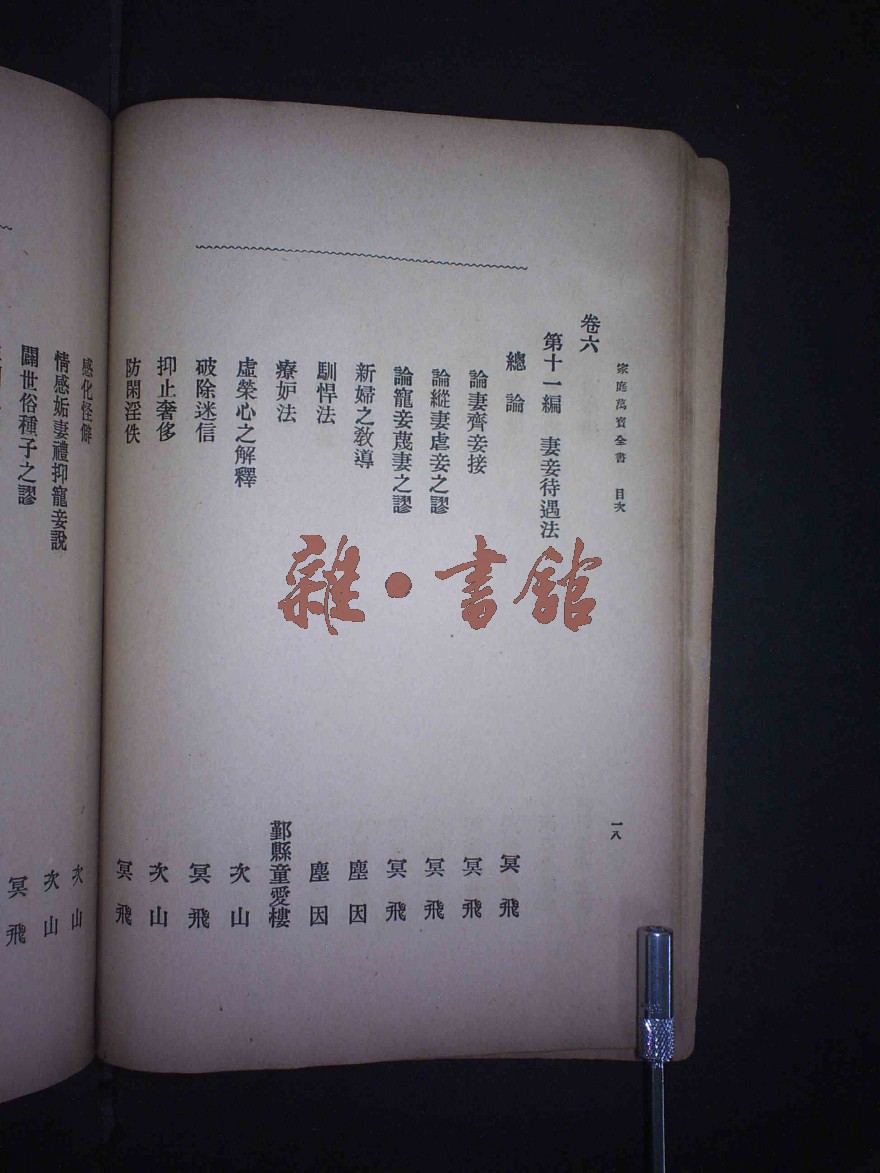 家庭萬寶全書 目次
一八
卷六
第十一編 妻妾待遇法
總論 冥飛
論妻齊妾接 冥飛
論縱妻虐妾之謬 冥飛
論寵妾蔑妻之謬 冥飛
新婦之教導 塵因
馴悍法 塵因
療妒法 鄞縣童愛樓
虛榮心之解釋 次山
破除迷信 冥飛
抑止奢侈 次山
防閑淫佚 冥飛
感化怪僻 次山
情感妬妻禮抑寵妾說 次山
闢世俗種子之謬 冥飛
雜·書館